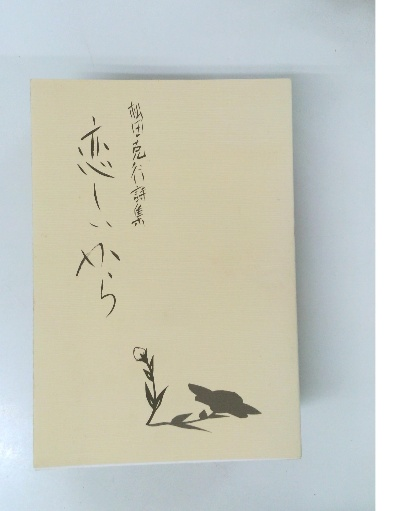 松田克行詩集
恋しいから